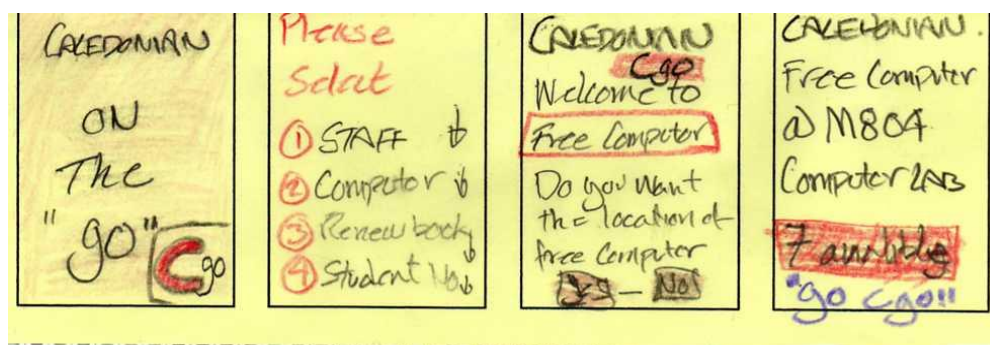 CALEDONIAN
ON
The
"go"
Cgo
Please
Select
1 STAFF
2 Computer
3 Renew book
4 Student No
CALEDONIAN
Cgo
Welcome to
Free Computer
Do you want
the location of
free Computer
Yes – No!
CALEDONIAN.
Free Computer
@ M804
Computer LAB
7
"go Cgo!!